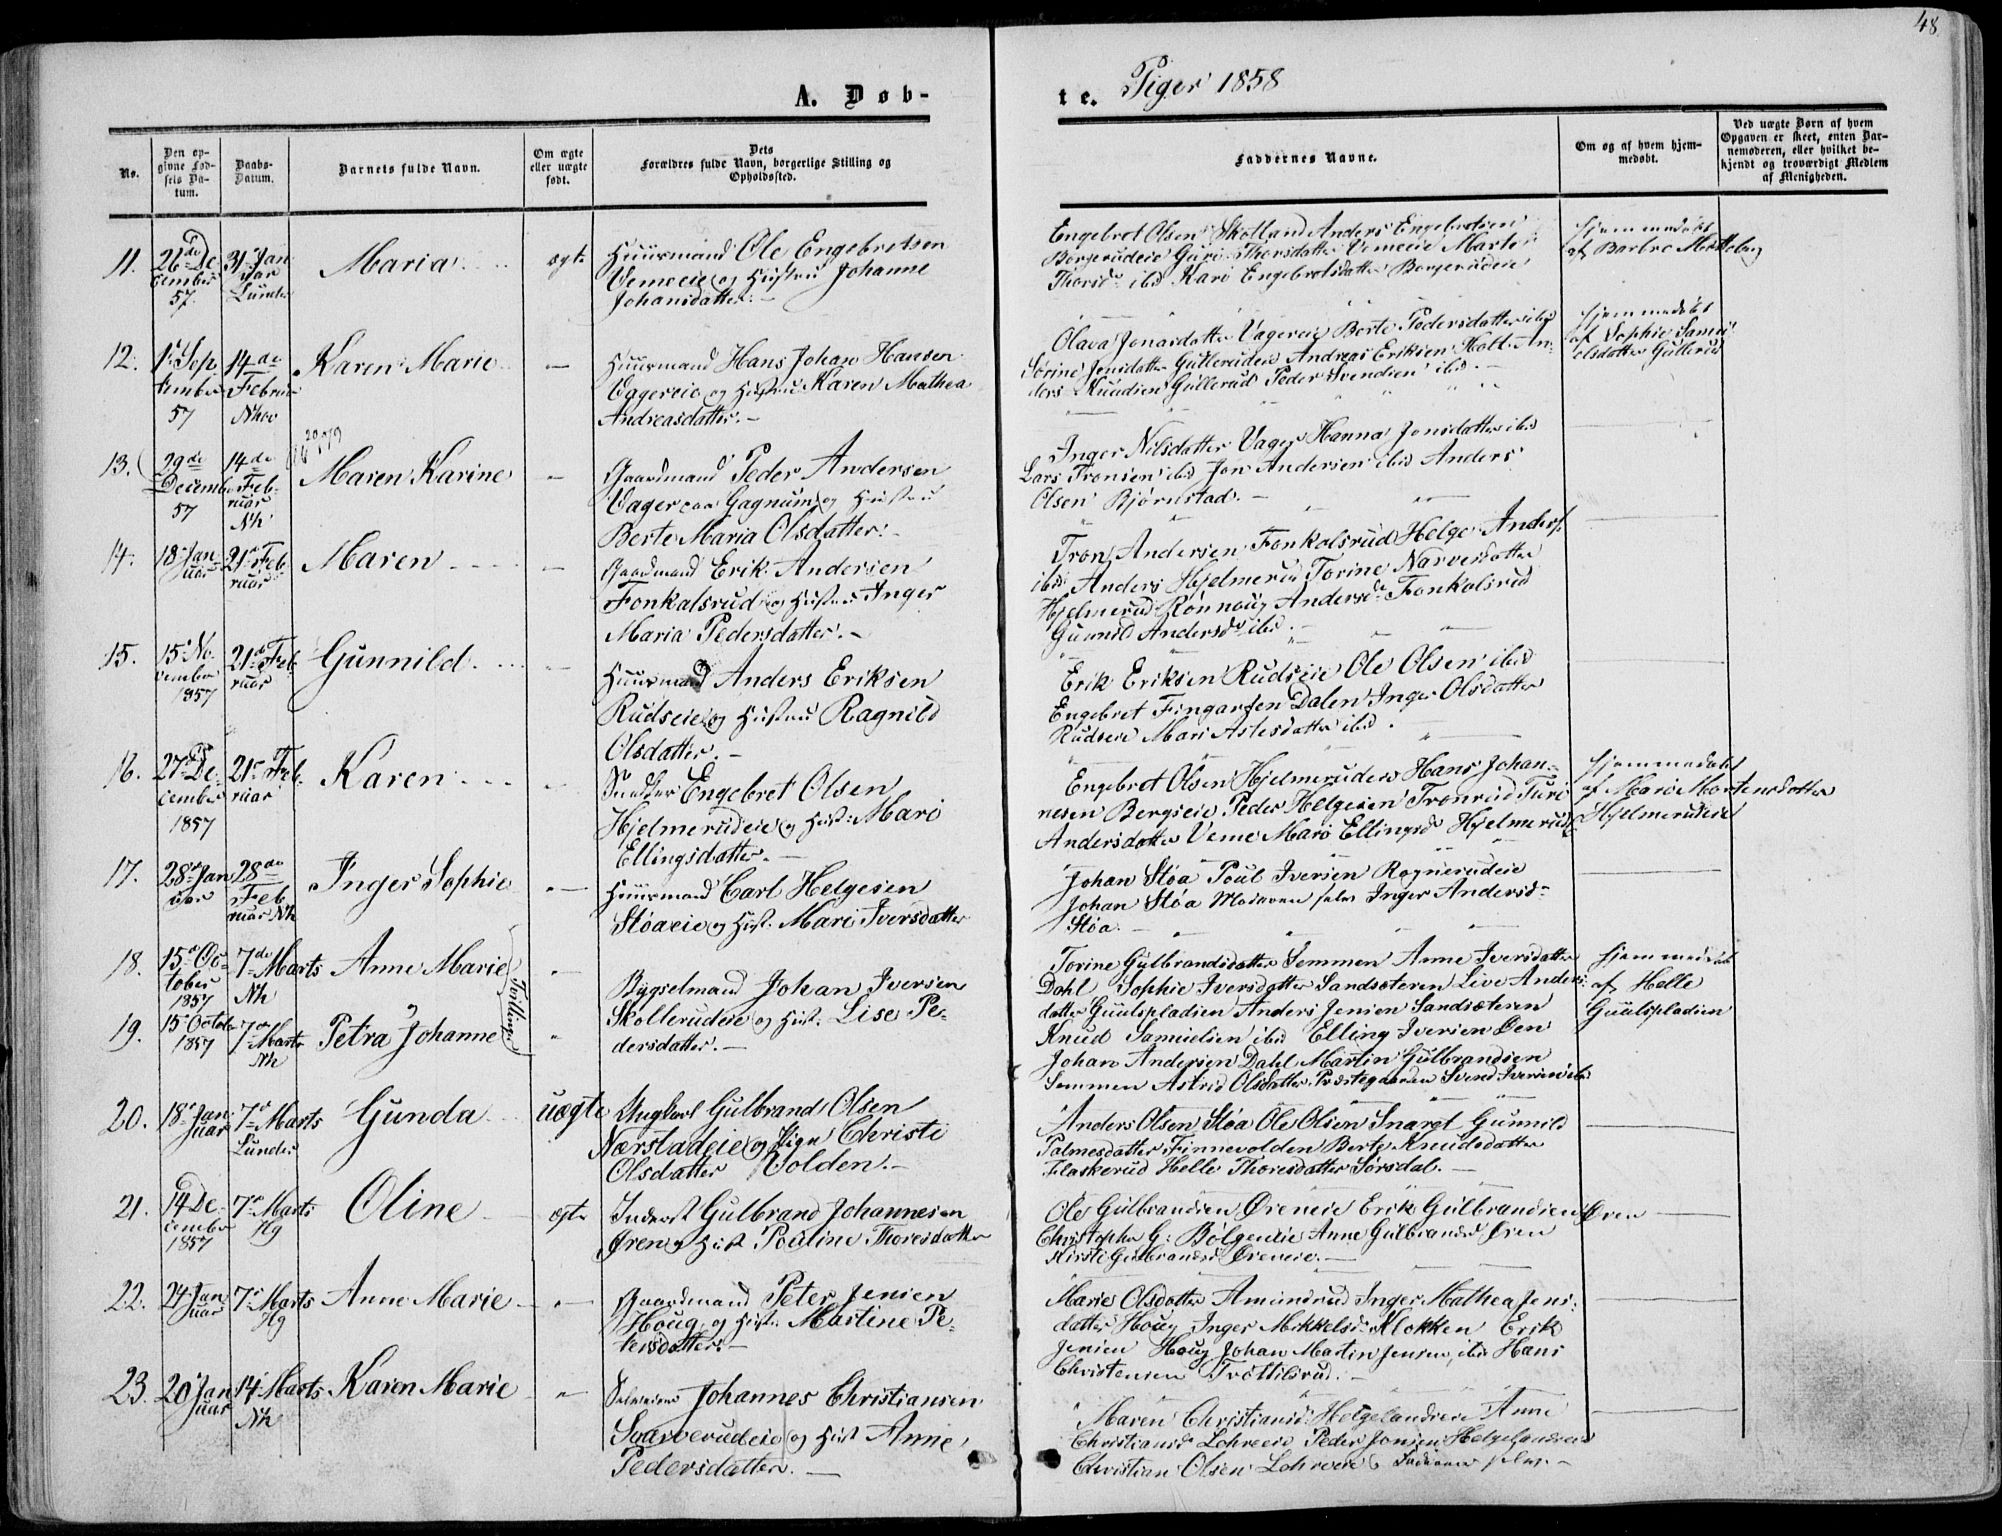 48.
A. Døb-
te. Piger 1858
No.
Den op-
givne Fød-
sels Da-
tum.
Daabs-
Datum.
Barnets fulde Navn.
Om ægte
eller uægte
født.
Dets
Forældres fulde Navn, borgerlige Stilling og
Opholdssted.
Faddernes Navne.
Om og af hvem hjem-
medøbt.
Ved uægte Børn af hvem
Opgaven er skeet, enten Bar-
nemoderen, eller hvilket be-
kjendt og troværdigt Medlem
af Menigheden.
11. 26de De-
cember
57.
31 Jan
uar
Lunder
Maria
ægte
Huusmand Ole Engebretsen
Vemeeie og Hustru Johanne
Johansdatter.
Engebret Olsen Skotland Anders Engebretsen
Borgerudeie Guri Thorsdatter Vemeeie Marte
Thorsd. ibid Kari Engebretsdatter Borgerudeie
Hjemmedøbt
af Barbro
12. 1 Sep
tember
57
14de
Februar
Nhov
Karen Marie
—
Huusmand Hans Johan Hansen
Eggereie og Hustru Karen Mathea
Andreasdatter.
Olava Jonasdatter Vagereie Berte Pedersdatter ibid
Sørine Jensdatter Gullerudeie Andreas Eriksen Holt An-
ders Knudsen Gullerud Peder Svendsen ibid.
Hjemmedøbt
af Sophie Samu-
elsdatter Gullerud
13. 29de
December
57
14de
Feb-
ruar
Nh
Maren Karine
Gaardmand Peder Andersen
Vager paa Gagnum og Hustru
Berte Maria Olsdatter.
Inger Nilsdatter Vager Hanna Jensdatter ibid
Lars Tronsen ibid Jon Andersen ibid Anders
Olsen Bjørnstad.
14. 18 Jan
uar
21 Feb
ruar
Maren
Gaardmand Erik Andersen
Fonkalsrud og Hustru Inger
Maria Pedersdatter.
Tron Andersen Fonkalsrud Helge Anders.
ibid Anders Hjelmerud Torine Narvesdatter
Hjelmerud Rønnoug Andersd. Fonkalsrud
Gunild Andersd. ibid.
15. 15 No-
vember
1857
21de Feb
ruar
Gunnild
Huusmand Anders Eriksen
Rudseie og Hustru Ragnild
Olsdatter.
Erik Eriksen Rudseie Ole Olsen ibid
Engebret Fingarsen Dalen Inger Olsdatter
Rudseie Mari Aslesdatter ibid.
16. 27 De-
cember
1857
21 Feb
ruar
Karen
Engebret Olsen
Hjelmerudeie og Hust. Mari
Ellingsdatter.
Engebret Olsen Hjelmerudeie Hans Johan-
nesen Bergseie Peder Helgesen Tronrud Turi
Andersdatter Veme Mari Ellingsd. Hjelmerud
Hjemmedøbt
af Mari Mortensdatter
Hjelmerudeie
17. 28 Jan
uar
28de
Feb
ruar Nh
Inger Sophie
Huusmand Carl Helgesen
Støaeie og Hust. Mari Iversdatter
Johan Støa Poul Iversen Rognerudeie
Johan Støa Moderen selv Inger Andersd.
Støa.
18. 15 Oc-
tober
1857
7de Marts
Nh
Anne Marie
Tvillinger
19. 15 October
1857
7de Marts
Nh
Petra Johanne
Bygselmand Johan Iversen
Skollerudeie og Hust. Lise Pe-
dersdatter.
Torine Gulbrandsdatter Semmen Anne Iversdatter
Dahl Sophie Iversdatter Sandsæteren Live Anders-
datter Guulspladsen Anders Jensen Sandsæteren
Knud Samuelsen ibid Elling Iversen Øen
Johan Andersen Dahl Martin Gulbrandsen
Semmen Astrid Olsdatter Præstegaarden Svend Iversen ibid
Hjemmedøbt
af Helle
Guulspladsen
20. 18 Jan
uar
7 Marts
Lunder
Gunda
uægte
Ungkarl Gulbrand Olsen
Nærstadeie og Pige Christi
Olsdatter Volden.
Anders Olsen Støa Ole Olsen Snaret Gunnild
Palmesdatter Finnevolden Berte Knudsdatter
Flaskerud Helle Thoresdatter Sørsdal.
21. 14 De-
cember
1857
7 Marts
Hg
Oline
ægte
Inderst Gulbrand Johannesen
Øren og Hust. Pouline Thoresdatter
Ole Gulbrandsen Øreneie Erik Gulbrandsen Øren
Christopher G. Bølgeneie Anne Gulbrandsd. Øren
Kirsti Gulbrandsd Øreneie.
22. 24 Jan
uar
7 Marts
Hg
Anne Marie
Gaardmand Peter Jensen
Houg og Hust. Martine Pe-
tersdatter.
Marie Olsdatter Amundrud Inger Mathea Jens-
datter Houg Inger Mikkelsd. Klokken Erik
Jensen Houg Johan Martin Jensen ibid Hans
Christensen Trøttilsrud.
23. 20 Jan
uar
14 Marts
Nh
Karen Marie
Selveier Johannes Christiansen
Svarverudeie og Hust Anne
Pedersdatter.
Maren Christiansd. Helgelandseie Anne
Christiansd. Lohreeie Peder Jonsen Helgelandseie
Christian Olsen Lohreeie selv.